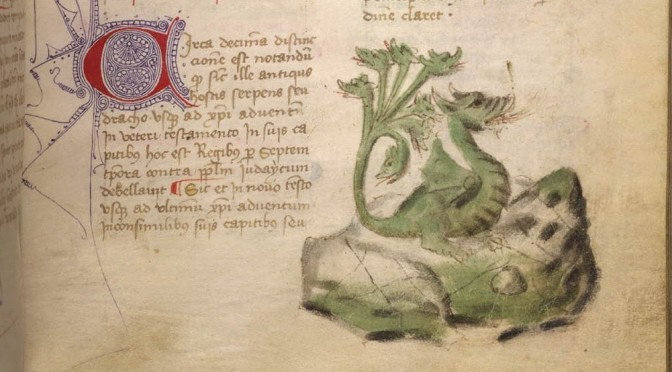 dine claret ·
Circa decima distinc
cione est notandu
ꝙ sic ille antiqus
hostis serpens seu
dracho usqꝫ ad xpi adventu
in veteri testamento in suis ca
pitibus hoc est Regibus p septem
tpora contra pplm Judaycum
debellauit ¶ Sic et in nouo testo
usqꝫ ad ultimu xpi aduentum
inconsimilibus suis capitibus seu